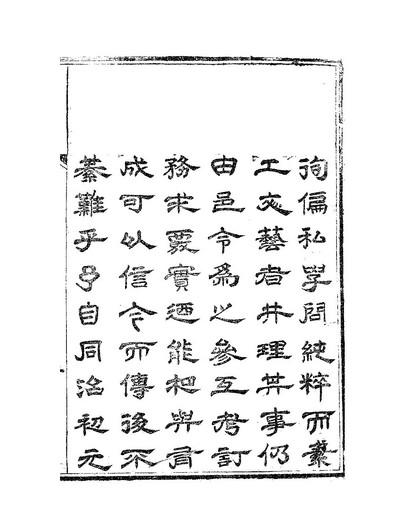 徇偏私學問純粹而兼
工文藝者共理其事仍
由邑令爲之參互考訂
務求覈實迺能相與有
成可以信今而傳後不
綦難乎予自同治初元